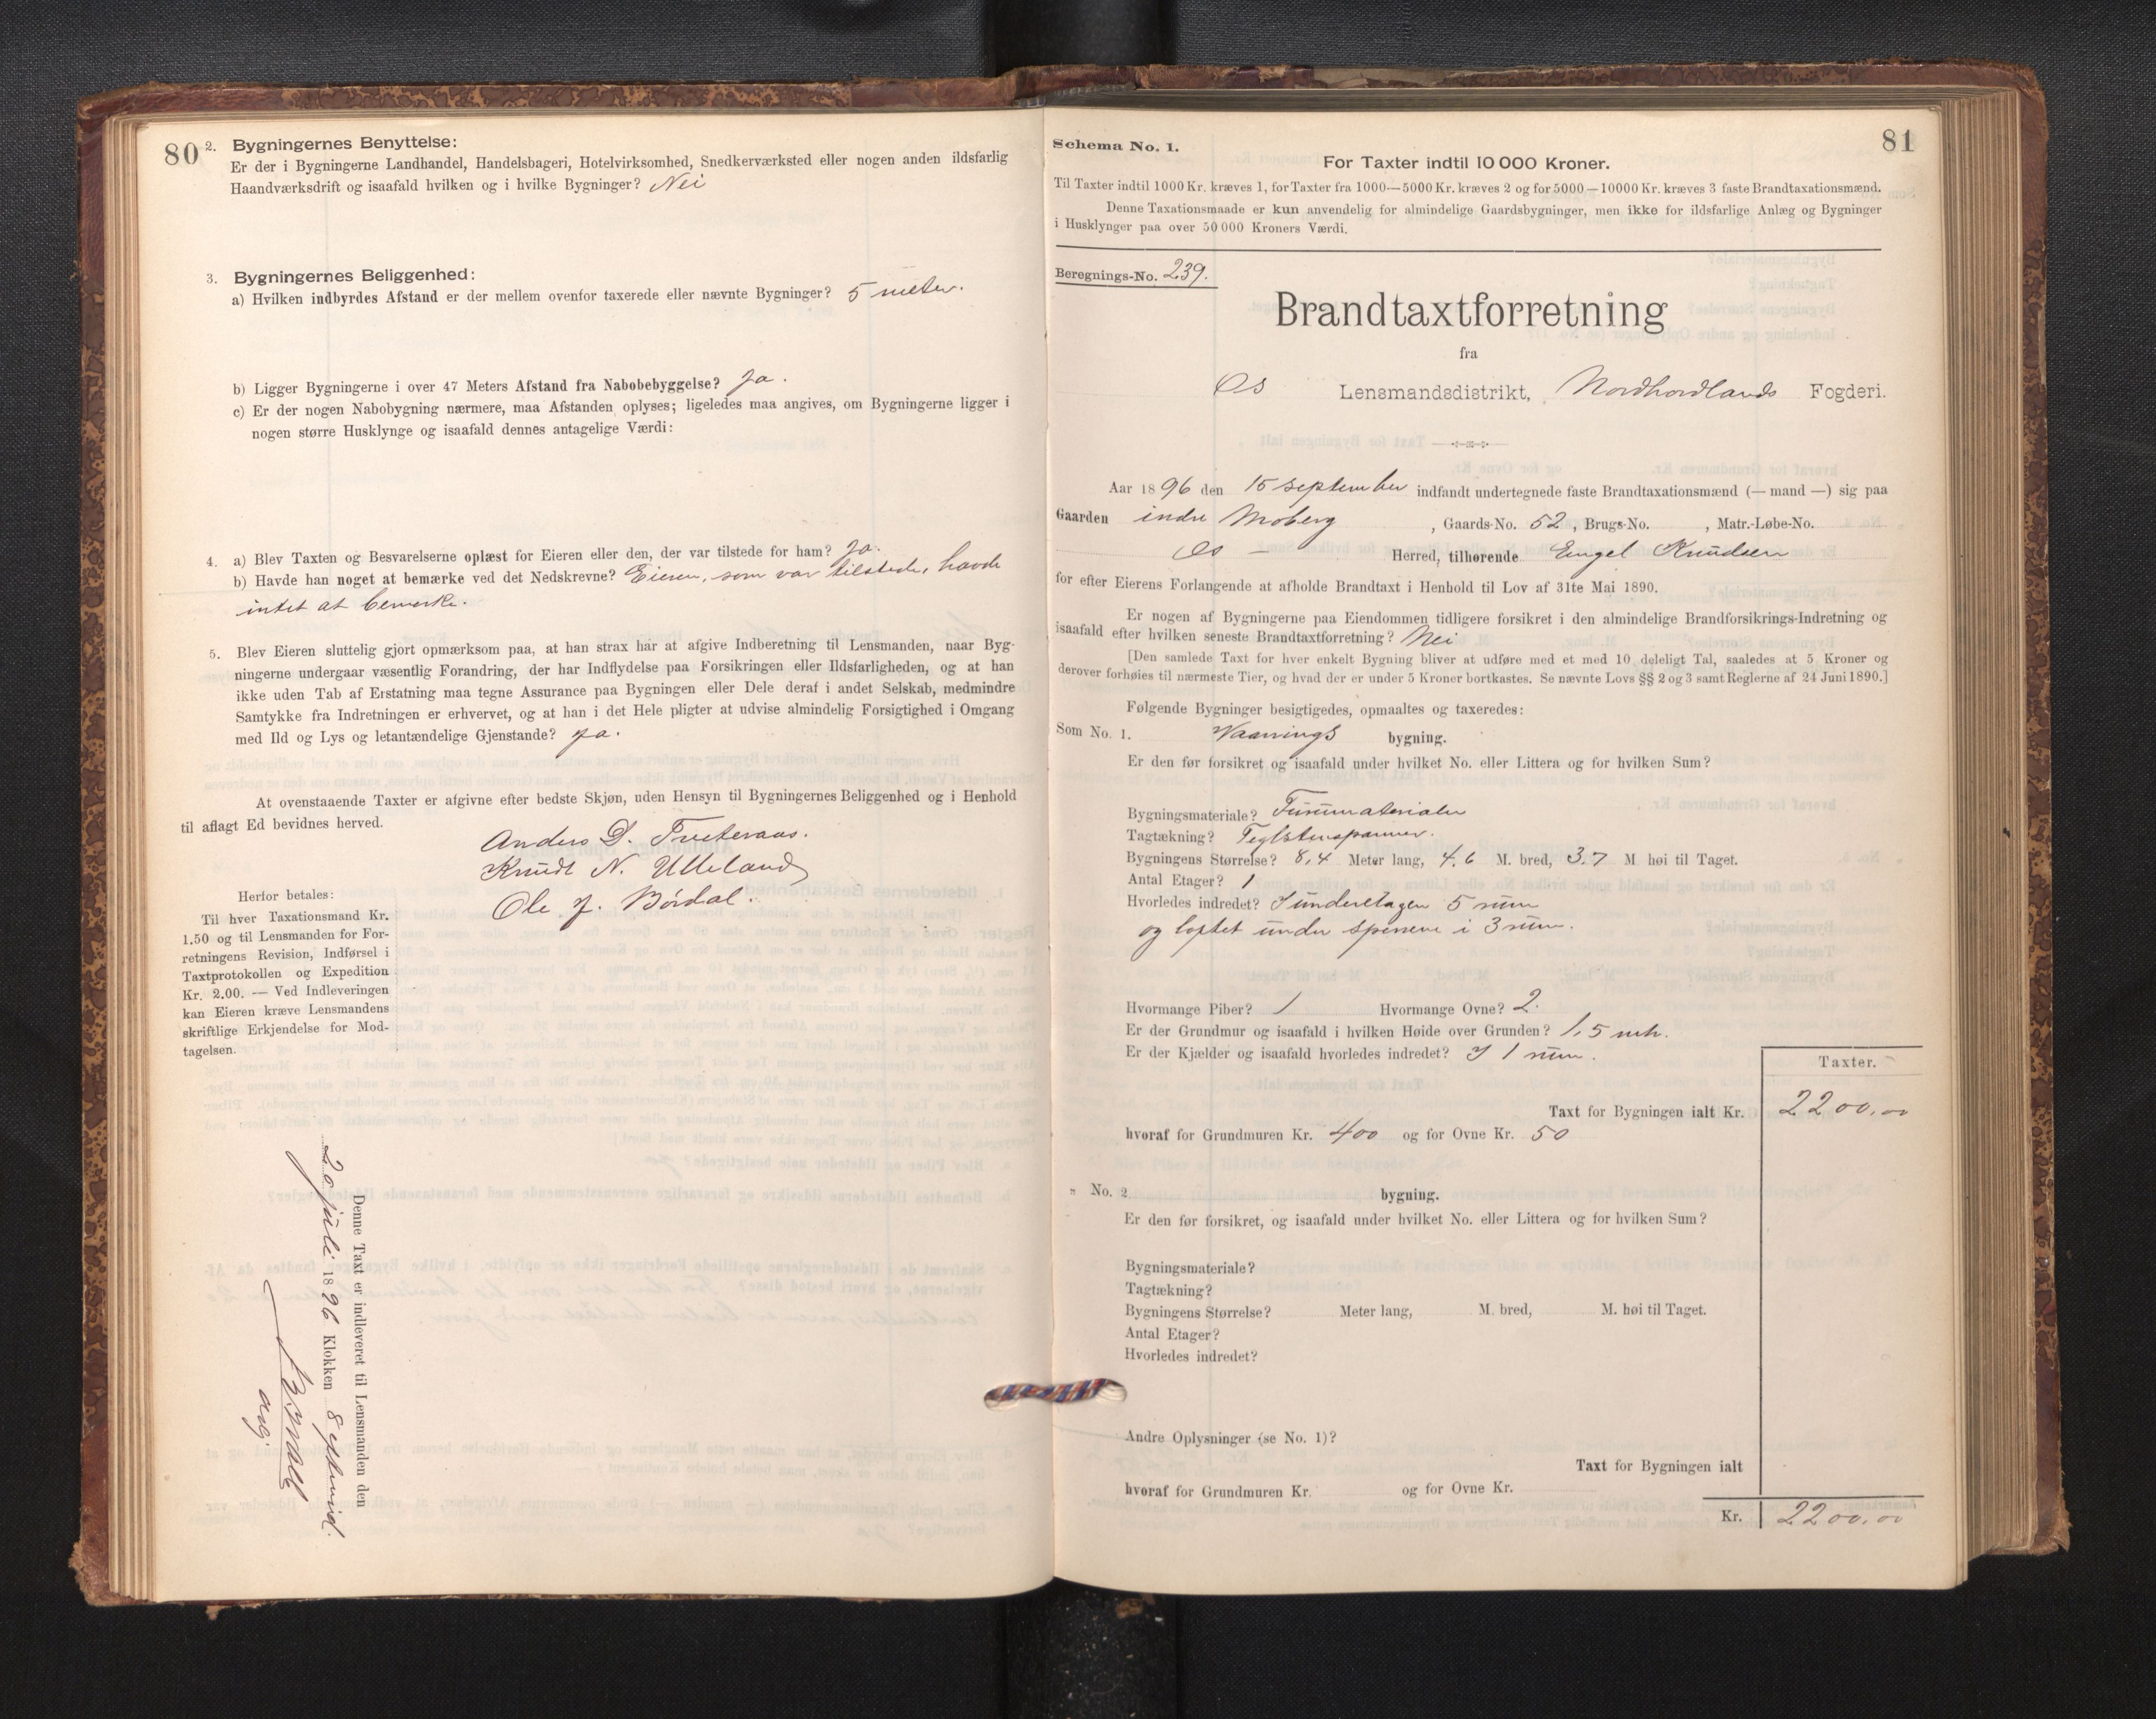 80
2. Bygningernes Benyttelse:
Er der i Bygningerne Landhandel, Handelsbageri, Hotelvirksomhed, Snedkerværksted eller nogen anden ildsfarlig
Haandværksdrift og isaafald hvilken og i hvilke Bygninger? Nei
3. Bygningernes Beliggenhed:
a) Hvilken indbyrdes Afstand er der mellem ovenfor taxerede eller nævnte Bygninger? 5 meter.
b) Ligger Bygningerne i over 47 Meters Afstand fra Nabobebyggelse? Ja.
c) Er der nogen Nabobygning nærmere, maa Afstanden oplyses; ligeledes maa angives, om Bygningerne ligger i
nogen større Husklynge og isaafald dennes antagelige Værdi:
4. a) Blev Taxten og Besvarelserne oplæst for Eieren eller den, der var tilstede for ham? Ja.
b) Havde han noget at bemærke ved det Nedskrevne? Eieren, som var tilstede, havde
intet at bemerke.
5. Blev Eieren sluttelig gjort opmærksom paa, at han strax har at afgive Indberetning til Lensmanden, naar Byg-
ningerne undergaar væsentlig Forandring, der har Indflydelse paa Forsikringen eller Ildsfarligheden, og at han
ikke uden Tab af Erstatning maa tegne Assurance paa Bygningen eller Dele deraf i andet Selskab, medmindre
Samtykke fra Indretningen er erhvervet, og at han i det Hele pligter at udvise almindelig Forsigtighed i Omgang
med Ild og Lys og letantændelige Gjenstande? Ja.
At ovenstaaende Taxter er afgivne efter bedste Skjøn, uden Hensyn til Bygningernes Beliggenhed og i Henhold
til aflagt Ed bevidnes herved.
Anders D. Tveteraas.
Knudt N. Ulleland
Ole J. Bördal.
Herfor betales:
Til hver Taxationsmand Kr.
1.50 og til Lensmanden for For-
retningens Revision, Indførsel i
Taxtprotokollen og Expedition
Kr. 2.00. — Ved Indleveringen
kan Eieren kræve Lensmandens
skriftlige Erkjendelse for Mod-
tagelsen.
Denne Taxt er indleveret til Lensmanden den
20 juli 1896 Klokken 8 eftermid.
81
Schema No. 1.
For Taxter indtil 10 000 Kroner.
Til Taxter indtil 1000 Kr. kræves 1, for Taxter fra 1000—5000 Kr. kræves 2 og for 5000—10000 Kr. kræves 3 faste Brandtaxationsmænd.
Denne Taxationsmaade er kun anvendelig for almindelige Gaardsbygninger, men ikke for ildsfarlige Anlæg og Bygninger
i Husklynger paa over 50 000 Kroners Værdi.
Beregnings-No. 239.
Brandtaxtforretning
fra
Os Lensmandsdistrikt, Nordhordlands Fogderi.
Aar 1896 den 15 september indfandt undertegnede faste Brandtaxationsmænd (— mand —) sig paa
Gaarden indre Moberg, Gaards-No. 52, Brugs-No. , Matr.-Løbe-No.
Os Herred, tilhørende Engel Knudsen
for efter Eierens Forlangende at afholde Brandtaxt i Henhold til Lov af 31te Mai 1890.
Er nogen af Bygningerne paa Eiendommen tidligere forsikret i den almindelige Brandforsikrings-Indretning og
isaafald efter hvilken seneste Brandtaxtforretning? Nei
[Den samlede Taxt for hver enkelt Bygning bliver at udføre med et med 10 deleligt Tal, saaledes at 5 Kroner og
derover forhøies til nærmeste Tier, og hvad der er under 5 Kroner bortkastes. Se nævnte Lovs §§ 2 og 3 samt Reglerne af 24 Juni 1890.]
Følgende Bygninger besigtigedes, opmaaltes og taxeredes:
Som No. 1. Vaanings bygning.
Er den før forsikret og isaafald under hvilket No. eller Littera og for hvilken Sum?
Bygningsmateriale? Furumaterialer
Tagtækning? Teglstenspanner.
Bygningens Størrelse? 8,4 Meter lang, 4,6 M. bred, 3,7 M høi til Taget.
Antal Etager? 1
Hvorledes indredet? I underetagen 5 rum
og loftet under sperrene i 3 rum.
Hvormange Piber? 1 Hvormange Ovne? 2.
Er der Grundmur og isaafald i hvilken Høide over Grunden? 1,5 mtr.
Er der Kjælder og isaafald hvorledes indredet? I 1 rum.
Taxter.
Taxt for Bygningen ialt Kr. 2200.00
hvoraf for Grundmuren Kr. 400 og for Ovne Kr. 50
" No. 2 bygning.
Er den før forsikret, og isaafald under hvilket No. eller Littera og for hvilken Sum?
Bygningsmateriale?
Tagtækning?
Bygningens Størrelse? Meter lang, M. bred, M. høi til Taget.
Antal Etager?
Hvorledes indredet?
Andre Oplysninger (se No. 1)?
Taxt for Bygningen ialt
hvoraf for Grundmuren Kr. og for Ovne Kr.
Kr. 2200.00